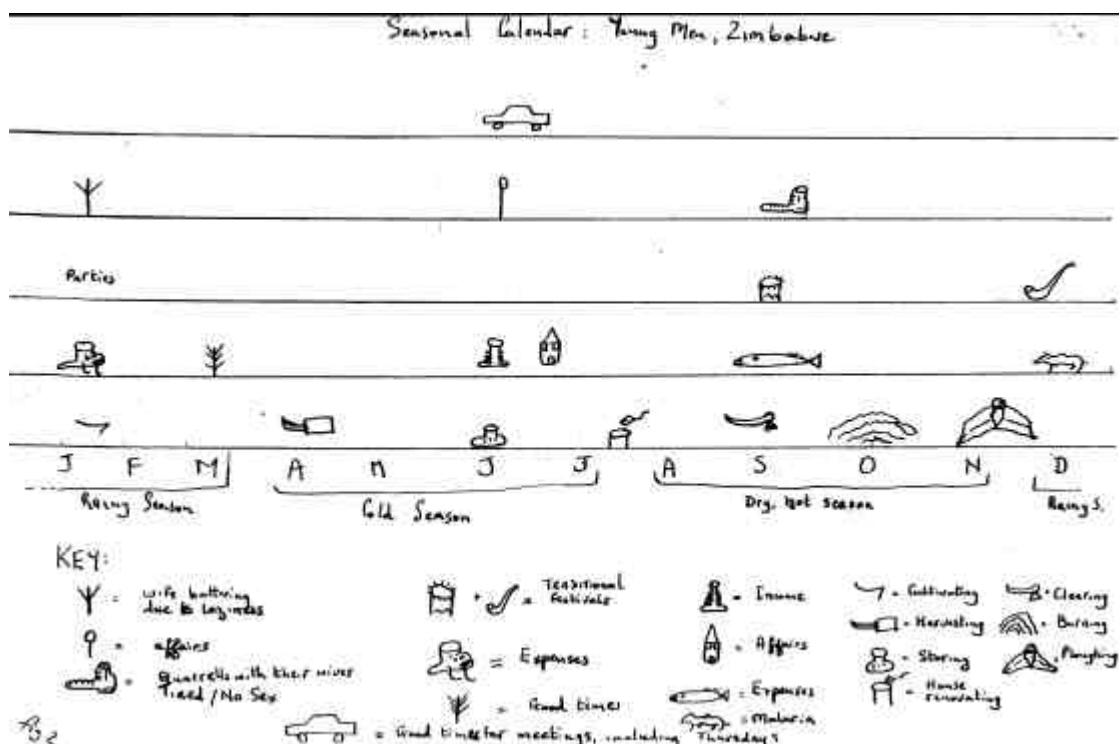 Seasonal Calendar: Young Men, Zimbabwe
Parties
J F M A M J J A S O N D
Rainy Season
Cold Season
Dry, hot season
Rainy S.
KEY:
= wife battering
due to laziness
= affairs
= Quarrells with their wives
Tired / No Sex
+ = Traditional
festivals
= Expenses
= Good times
= Good times for meetings, including Thursdays
= Income
= Affairs
= Expenses
= Malaria
= Cultivating
= Harvesting
= Storing
= House
renovating
= Clearing
= Burning
= Ploughing